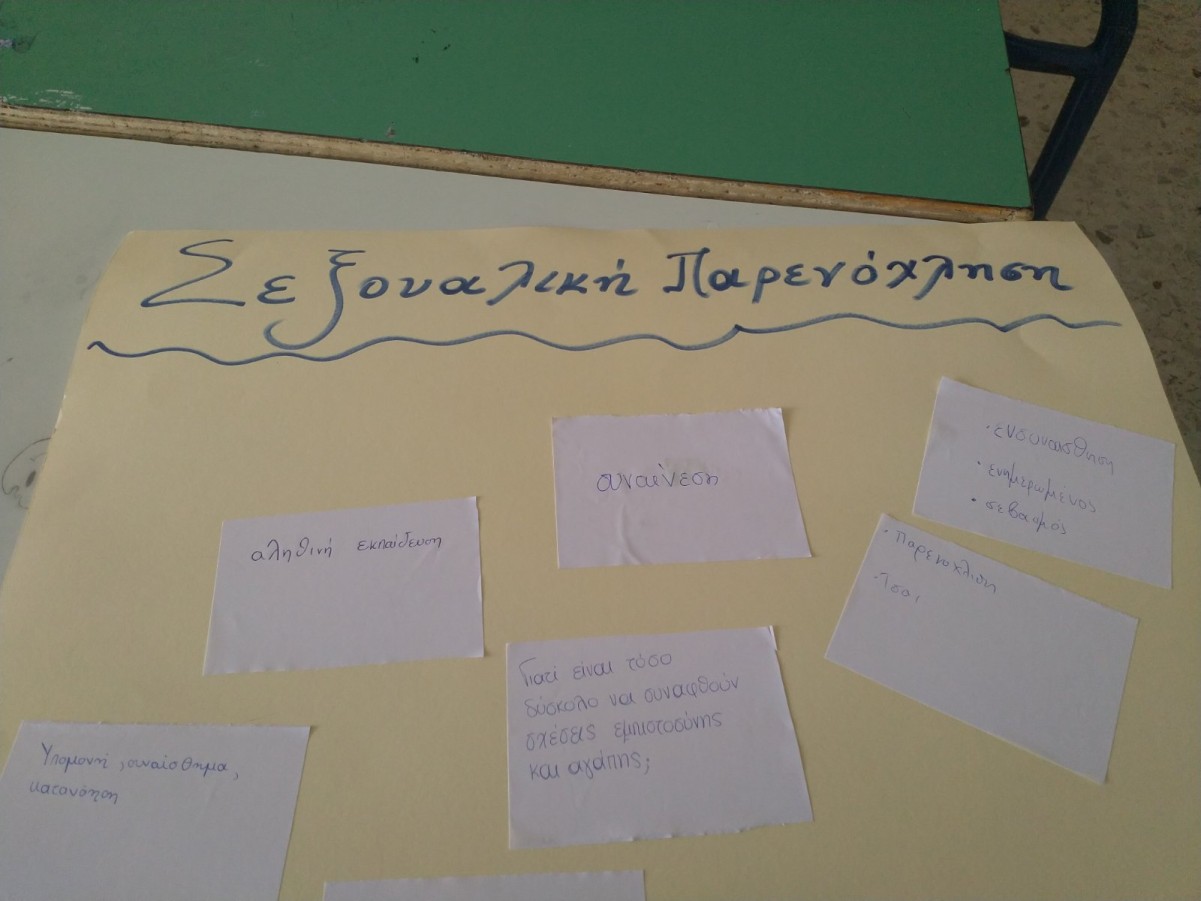 Σεξουαλική Παρενόχληση
συναίνεση
· ενσυναίσθηση
· ενημερωμένος
· σεβασμός
αληθινή εκπαίδευση
· Παρενοχλιση
· Τσαι
Γιατί είναι τόσο
δύσκολο να συναφθούν
σχέσεις εμπιστοσύνης
και αγάπης;
Υπομονή, συναίσθημα,
κατανόηση